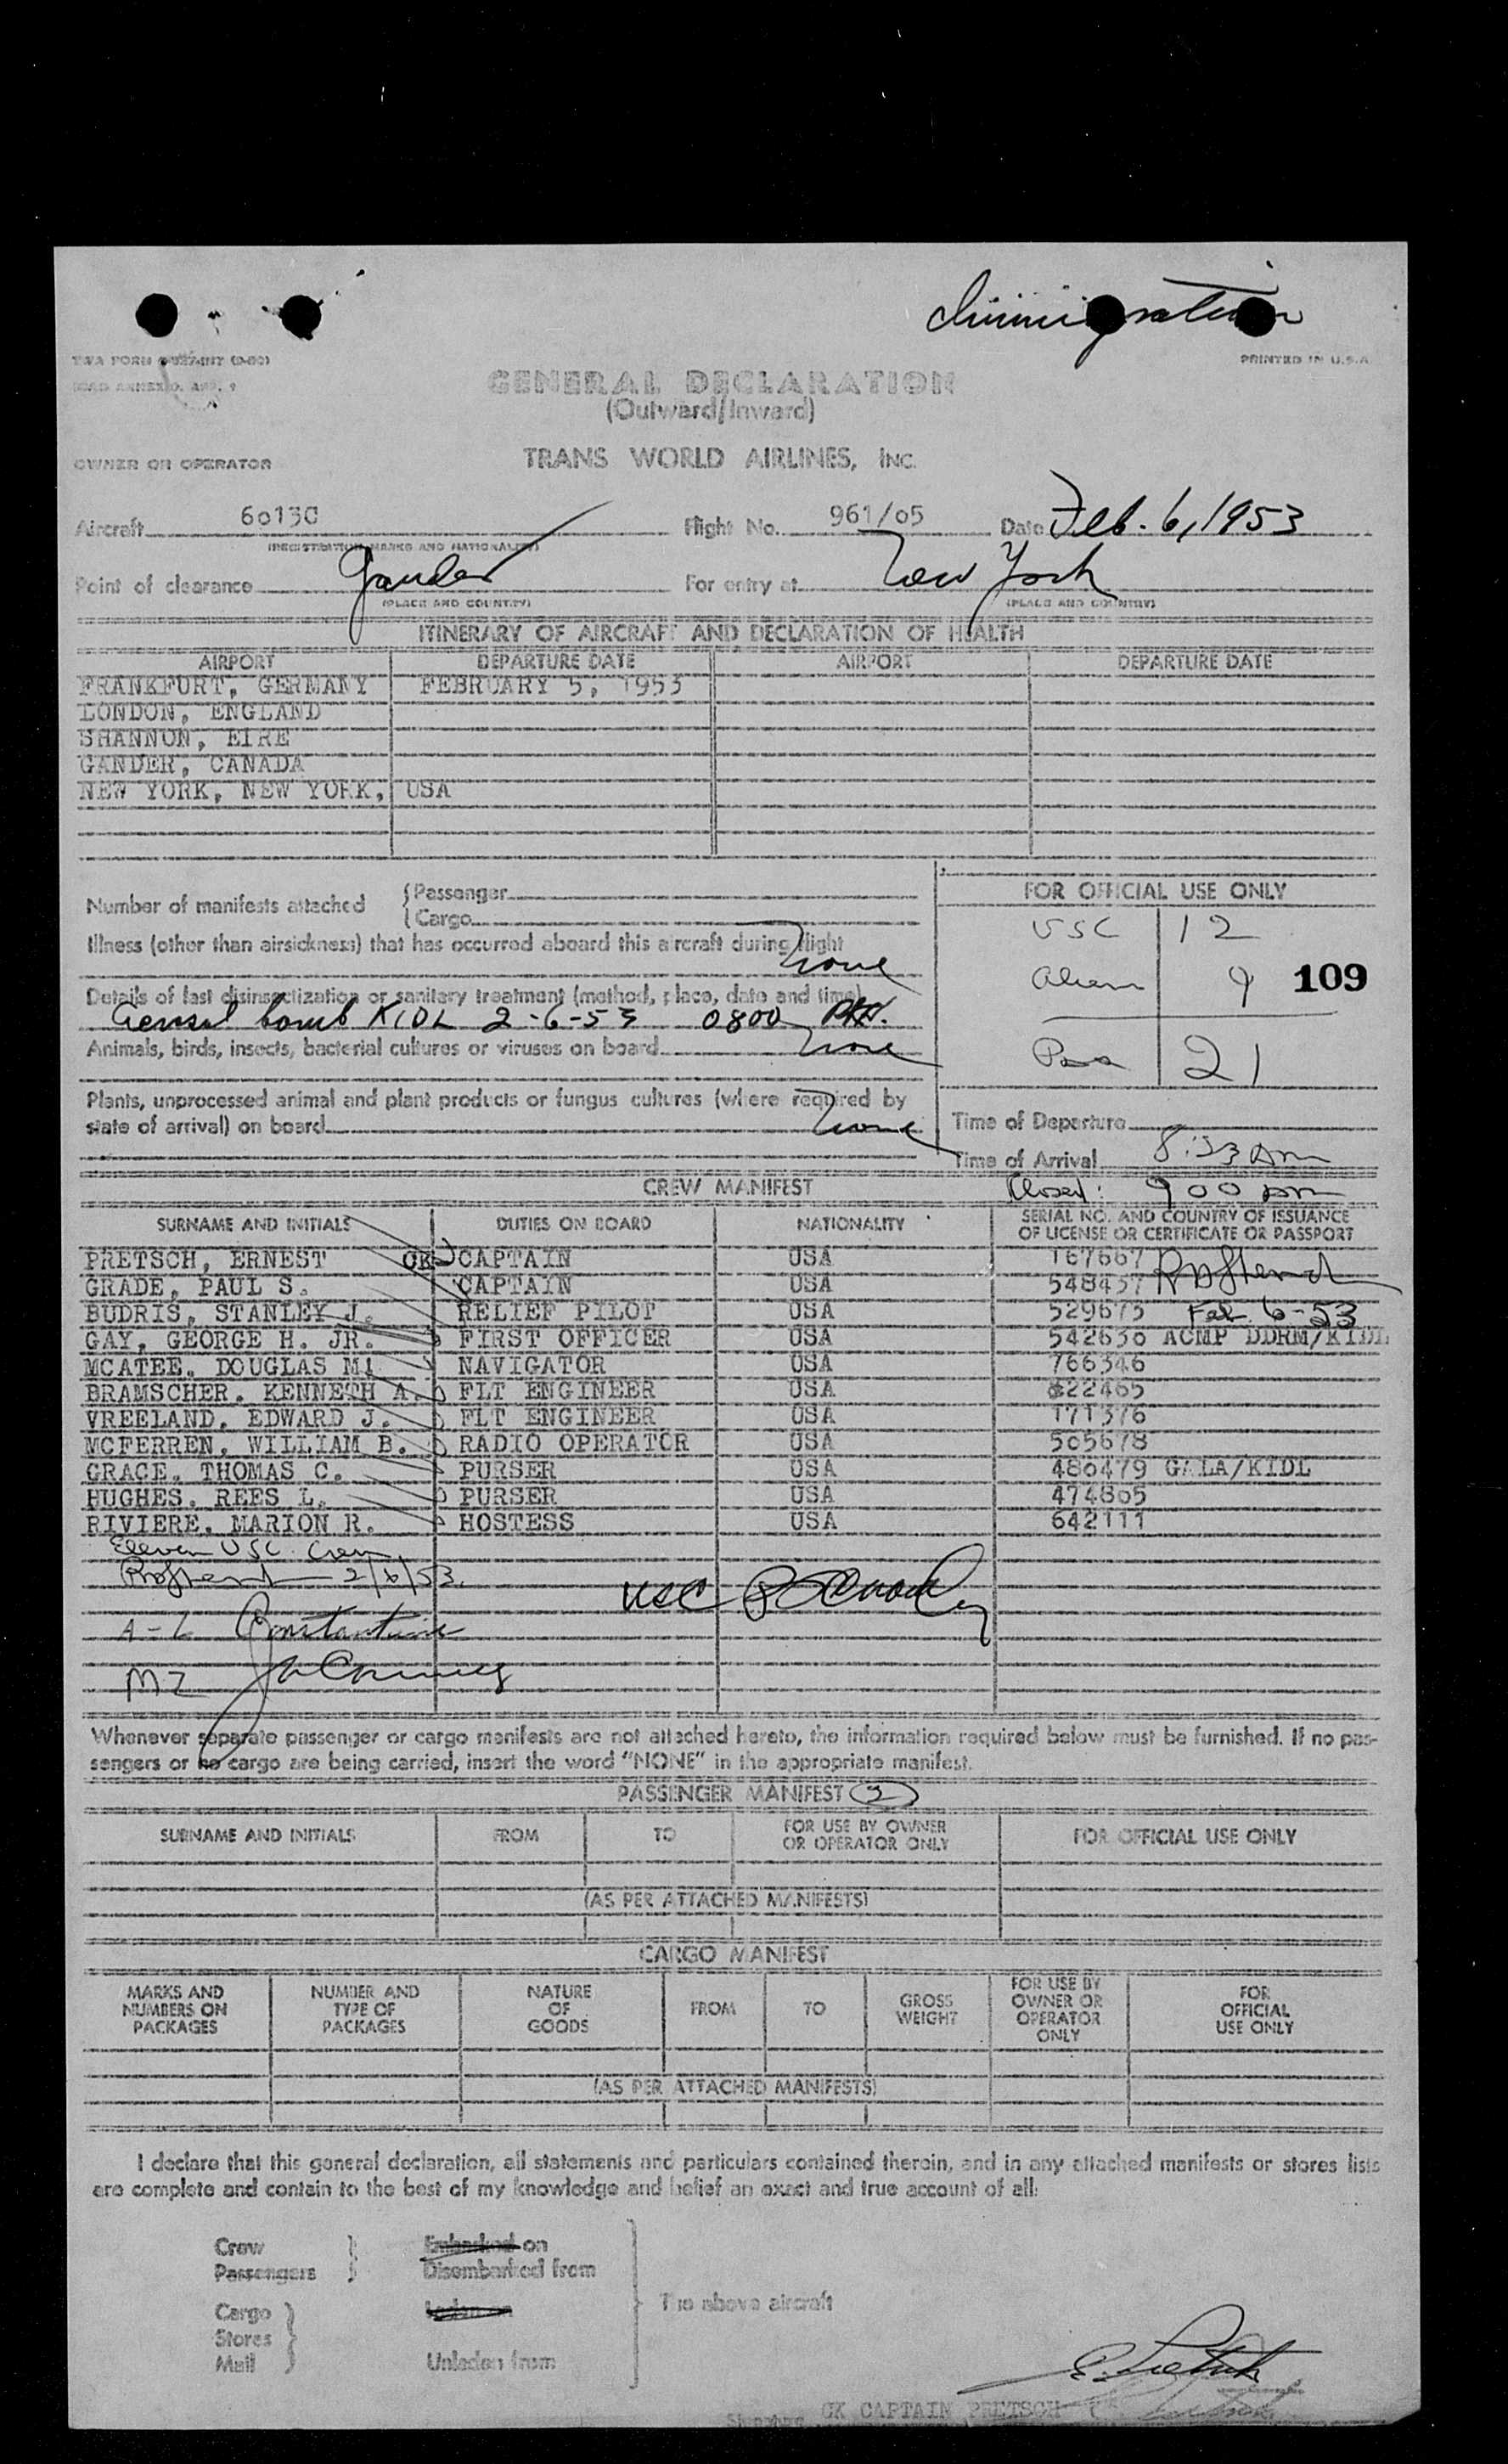 Immigration
PRINTED IN U.S.A.
GENERAL DECLARATION
(Outward/Inward)
OWNER OR OPERATOR TRANS WORLD AIRLINES, INC.
Aircraft 6013C Flight No. 961/05 Date Feb. 6, 1953
(REGISTRATION MARKS AND NATIONALITY)
Point of clearance Gander For entry at New York
(PLACE AND COUNTRY) (PLACE AND COUNTRY)
ITINERARY OF AIRCRAFT AND DECLARATION OF HEALTH
AIRPORT DEPARTURE DATE AIRPORT DEPARTURE DATE
FRANKFURT, GERMANY FEBRUARY 5, 1953
LONDON, ENGLAND
SHANNON, EIRE
GANDER, CANADA
NEW YORK, NEW YORK, USA
Number of manifests attached { Passenger
{ Cargo
Illness (other than airsickness) that has occurred aboard this aircraft during flight
None
Details of last disinsectization or sanitary treatment (method, place, date and time)
Aerosol bomb KIDL 2-6-53 0800
Animals, birds, insects, bacterial cultures or viruses on board None
Plants, unprocessed animal and plant products or fungus cultures (where required by
state of arrival) on board None
FOR OFFICIAL USE ONLY
USC 12
Alien 9 109
Pass 21
Time of Departure
Time of Arrival 8:23 Am
Closed: 900 am
CREW MANIFEST
SURNAME AND INITIALS DUTIES ON BOARD NATIONALITY SERIAL NO. AND COUNTRY OF ISSUANCE
OF LICENSE OR CERTIFICATE OR PASSPORT
PRETSCH, ERNEST CK CAPTAIN USA 167667
GRADE, PAUL S. CAPTAIN USA 548437
BUDRIS, STANLEY J. RELIEF PILOT USA 529673 Feb 6-53
GAY, GEORGE H. JR. FIRST OFFICER USA 542630 ACMP DDRM/KIDL
MCATEE, DOUGLAS M. NAVIGATOR USA 766346
BRAMSCHER, KENNETH A. FLT ENGINEER USA 822465
VREELAND, EDWARD J. FLT ENGINEER USA 171376
MCFERREN, WILLIAM B. RADIO OPERATOR USA 505678
GRACE, THOMAS C. PURSER USA 480479 GALA/KIDL
HUGHES, REES L. PURSER USA 474865
RIVIERE, MARION R. HOSTESS USA 642111
Eleven USC Crew
2/6/53.
USC
A-L Constantine
MZ
Whenever separate passenger or cargo manifests are not attached hereto, the information required below must be furnished. If no pas-
sengers or no cargo are being carried, insert the word "NONE" in the appropriate manifest.
PASSENGER MANIFEST (2)
SURNAME AND INITIALS FROM TO FOR USE BY OWNER
OR OPERATOR ONLY FOR OFFICIAL USE ONLY
(AS PER ATTACHED MANIFESTS)
CARGO MANIFEST
MARKS AND
NUMBERS ON
PACKAGES NUMBER AND
TYPE OF
PACKAGES NATURE
OF
GOODS FROM TO GROSS
WEIGHT FOR USE BY
OWNER OR
OPERATOR
ONLY FOR
OFFICIAL
USE ONLY
(AS PER ATTACHED MANIFESTS)
I declare that this general declaration, all statements and particulars contained therein, and in any attached manifests or stores lists
are complete and contain to the best of my knowledge and belief an exact and true account of all:
Crew } Embarked on
Passengers } Disembarked from
Cargo } Laden on
Stores
Mail Unladen from
The above aircraft
E. Pretsch
Signature CK CAPTAIN PRETSCH